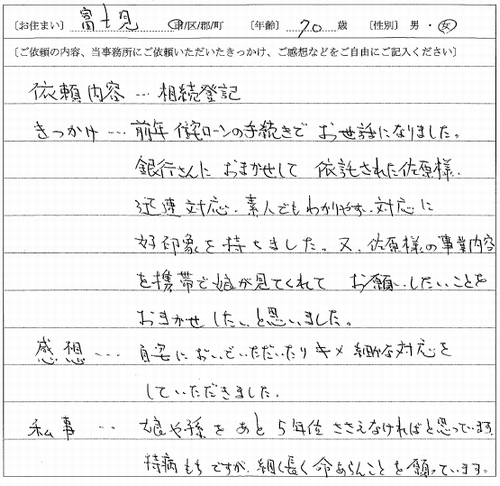 〔お住まい〕 富士見 市/区/郡/町 〔年齢〕 70 歳 〔性別〕 男・女
〔ご依頼の内容、当事務所にご依頼いただいたきっかけ、ご感想などをご自由にご記入ください〕
依頼内容…相続登記
きっかけ…前年住宅ローンの手続きで お世話になりました。
銀行さんに おまかせして 依託された佐原様、
迅速対応、素人でもわかりやすい対応に
好印象を持ちました。又、佐原様の事業内容
を携帯で娘が見てくれて お願いしたいことを
おまかせしたいと思いました。
感想…自宅においでいただいたりキメ細かな対応を
していただきました。
私事…娘や孫をあと5年位ささえなければと思っています。
持病もちですが、細く長く命あらんことを願っています。